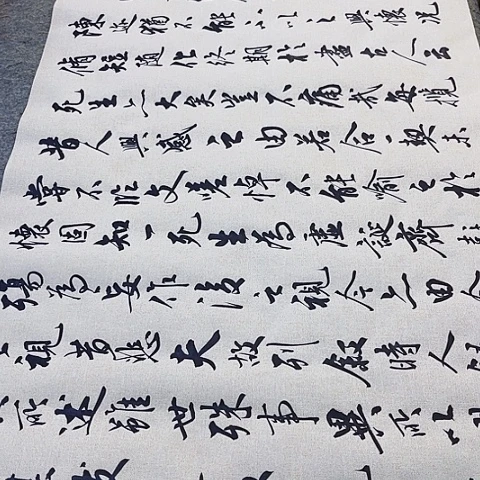 陳迹猶不能不以之興懷況
脩短隨化終期於盡古人云
死生亦大矣豈不痛哉每攬
昔人興感之由若合一契未
嘗不臨文嗟悼不能喻之於
懷固知一死生為虛誕齊彭
殤為妄作後之視今亦由今
之視昔悲夫故列敘時人
所述雖世殊事異所以